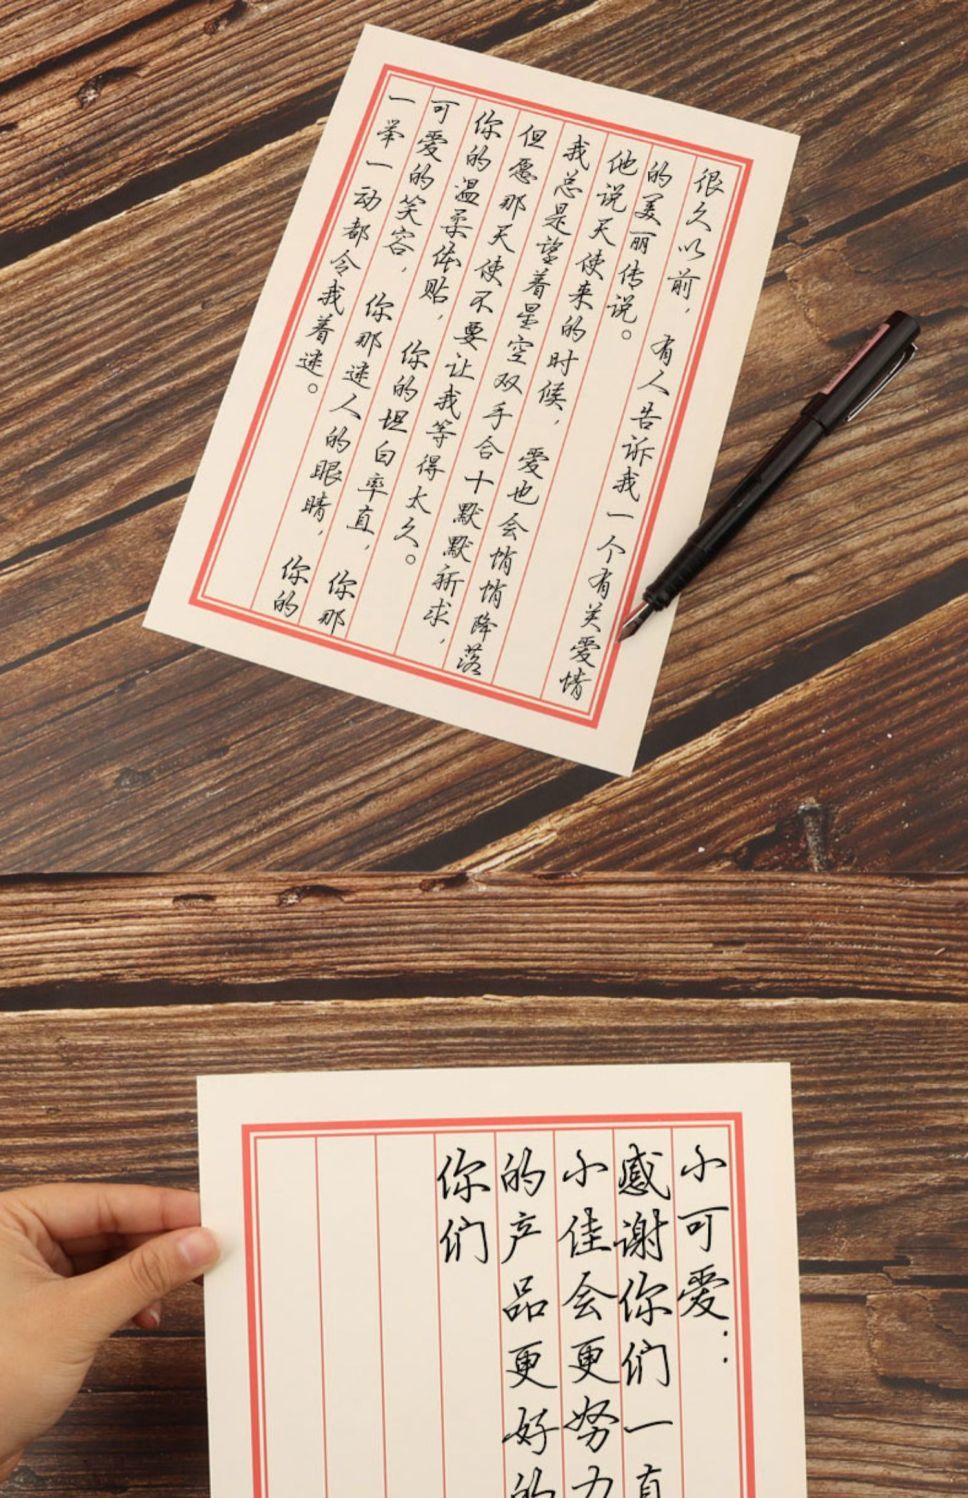 很久以前，有人告诉我一个有关爱情
的美丽传说。
他说天使来的时候，爱也会悄悄降落
我总是望着星空双手合十默默祈求，
但愿那天使不要让我等得太久。
你的温柔体贴，你的坦白率直，你那
可爱的笑容，你那迷人的眼睛，你的
一举一动都令我着迷。
小可爱：
感谢你们一直
小佳会更努力
的产品更好的
你们